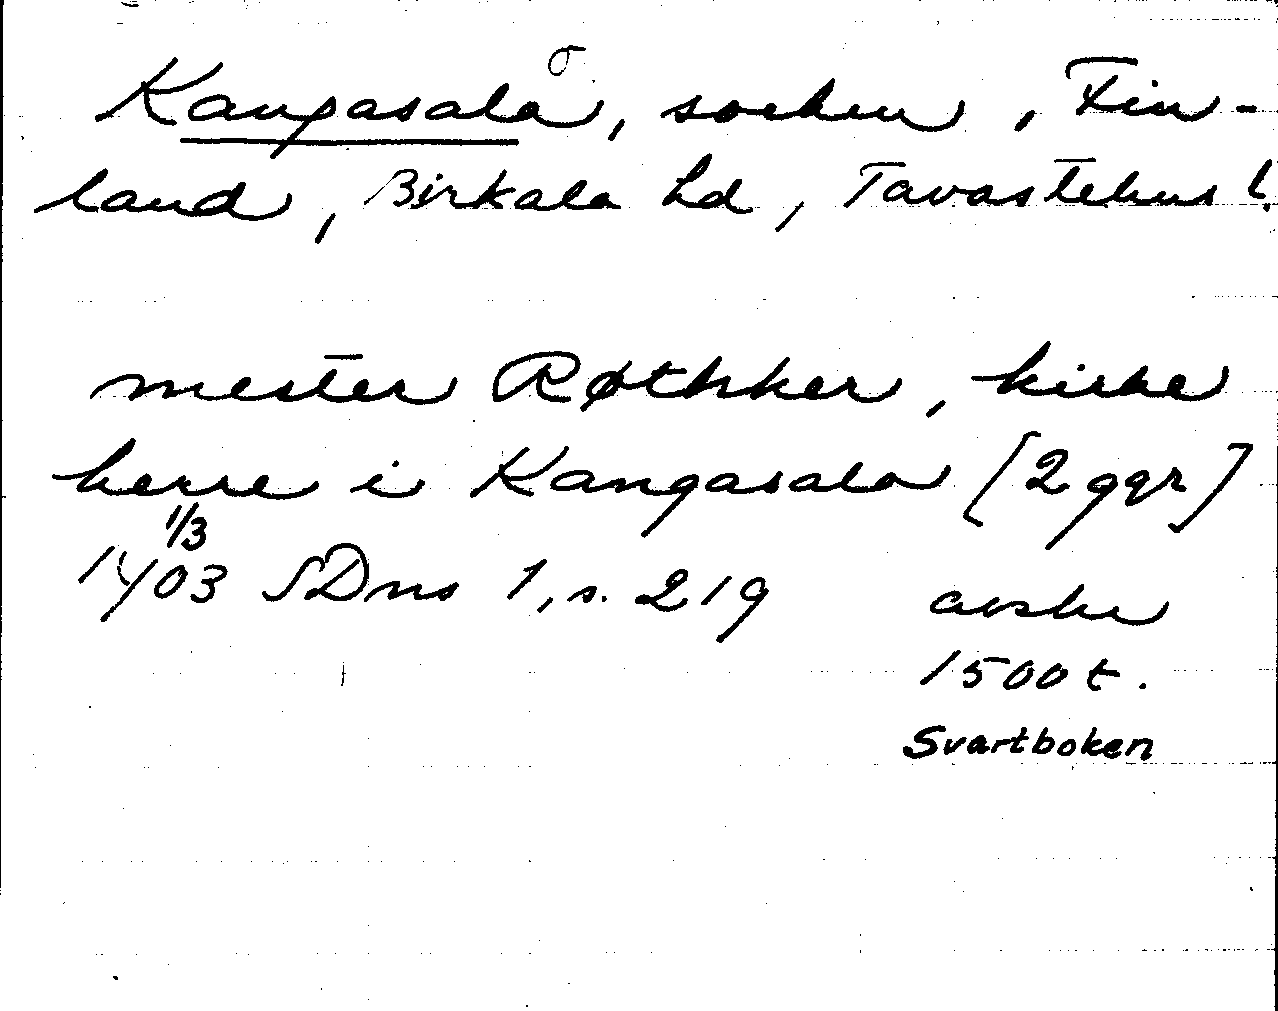 Kangasala, socken, Fin-
land, Birkala hd, Tavastehus l.
mester Røthker, kirke
herre i Kangasala [2 ggr]
1/3
1403 SDns 1, s. 219
avskr
1500 t.
Svartboken